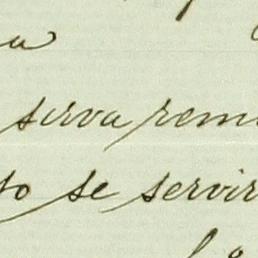 a
sirva rem
to se servir